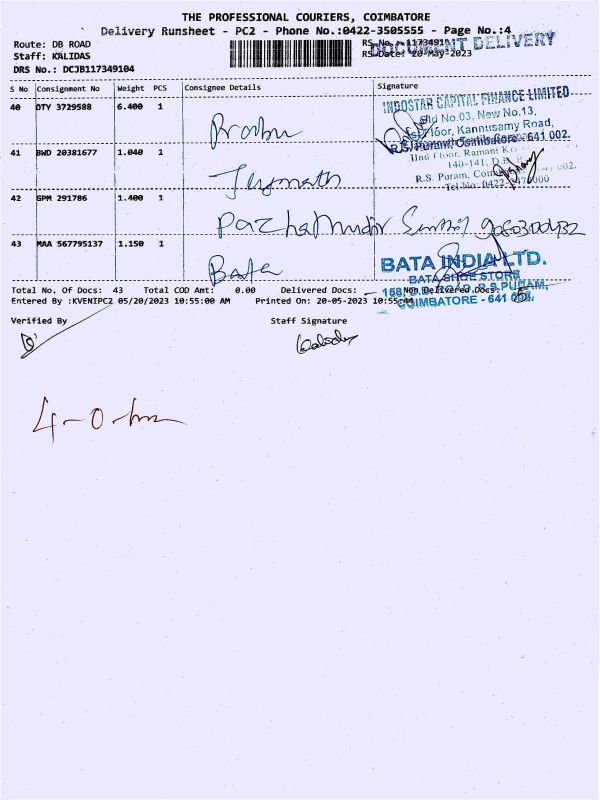 THE PROFESSIONAL COURIERS, COIMBATORE
Delivery Runsheet - PC2 - Phone No.:0422-3505555 - Page No.:4
Route: DB ROAD
RS No.:
DOCUMENT DELIVERY
Staff: KALIDAS
RS Date: 20-May-2023
DRS No.: DCJB117349104
S No Consignment No Weight PCS Consignee Details Signature
40 DTY 3729588 6.400 1
INDOSTAR CAPITAL FINANCE LIMITED
Old No.03, New No.13,
Floor, Kannusamy Road,
R.S. Puram, Coimbatore - 641 002.
41 BWD 20381677 1.040 1
IInd Floor, Ramani
140-141,
R.S. Puram,
Tel No. 0422
42 GPM 291786 1.400 1
43 MAA 567795137 1.150 1
Bata
BATA INDIA LTD.
BATA SHOE STORE
R.S PURAM,
COIMBATORE - 641 002.
Total No. Of Docs: 43 Total COD Amt: 0.00 Delivered Docs: Non Delivered Docs: 5
Entered By :KVENIPC2 05/20/2023 10:55:00 AM Printed On: 20-05-2023 10:55
Verified By Staff Signature